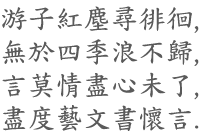 游子紅塵尋徘徊,
無於四季浪不歸,
言莫情盡心未了,
盡度藝文書懷言.